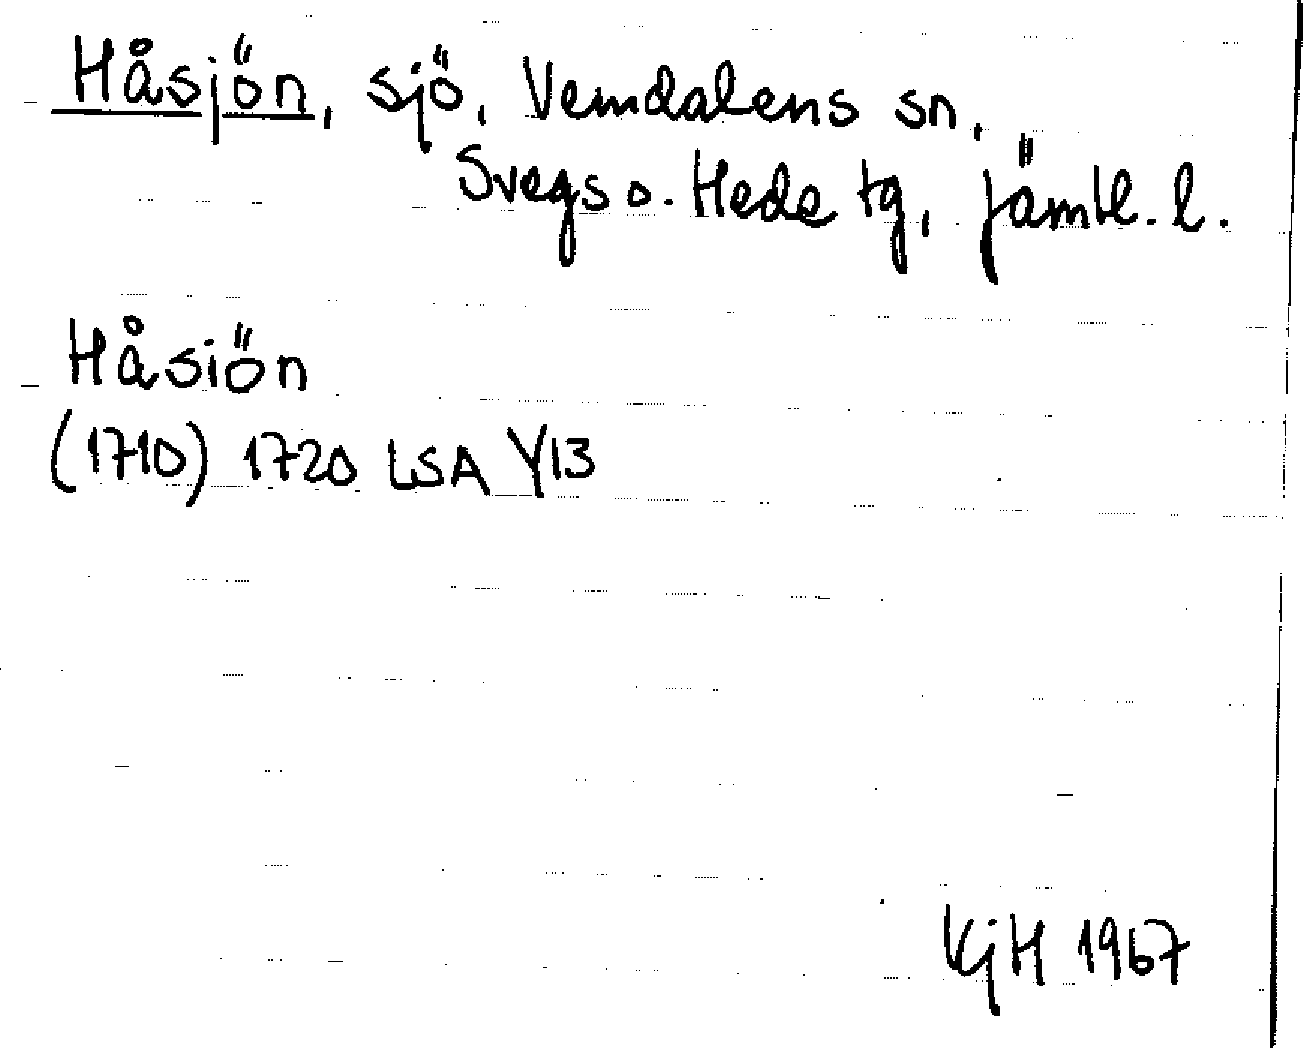 Håsjön, sjö, Vemdalens sn,
Svegs o. Hede tg, Jämtl. l.
Håsiön
(1710) 1720 LSA Y13
KjH 1967